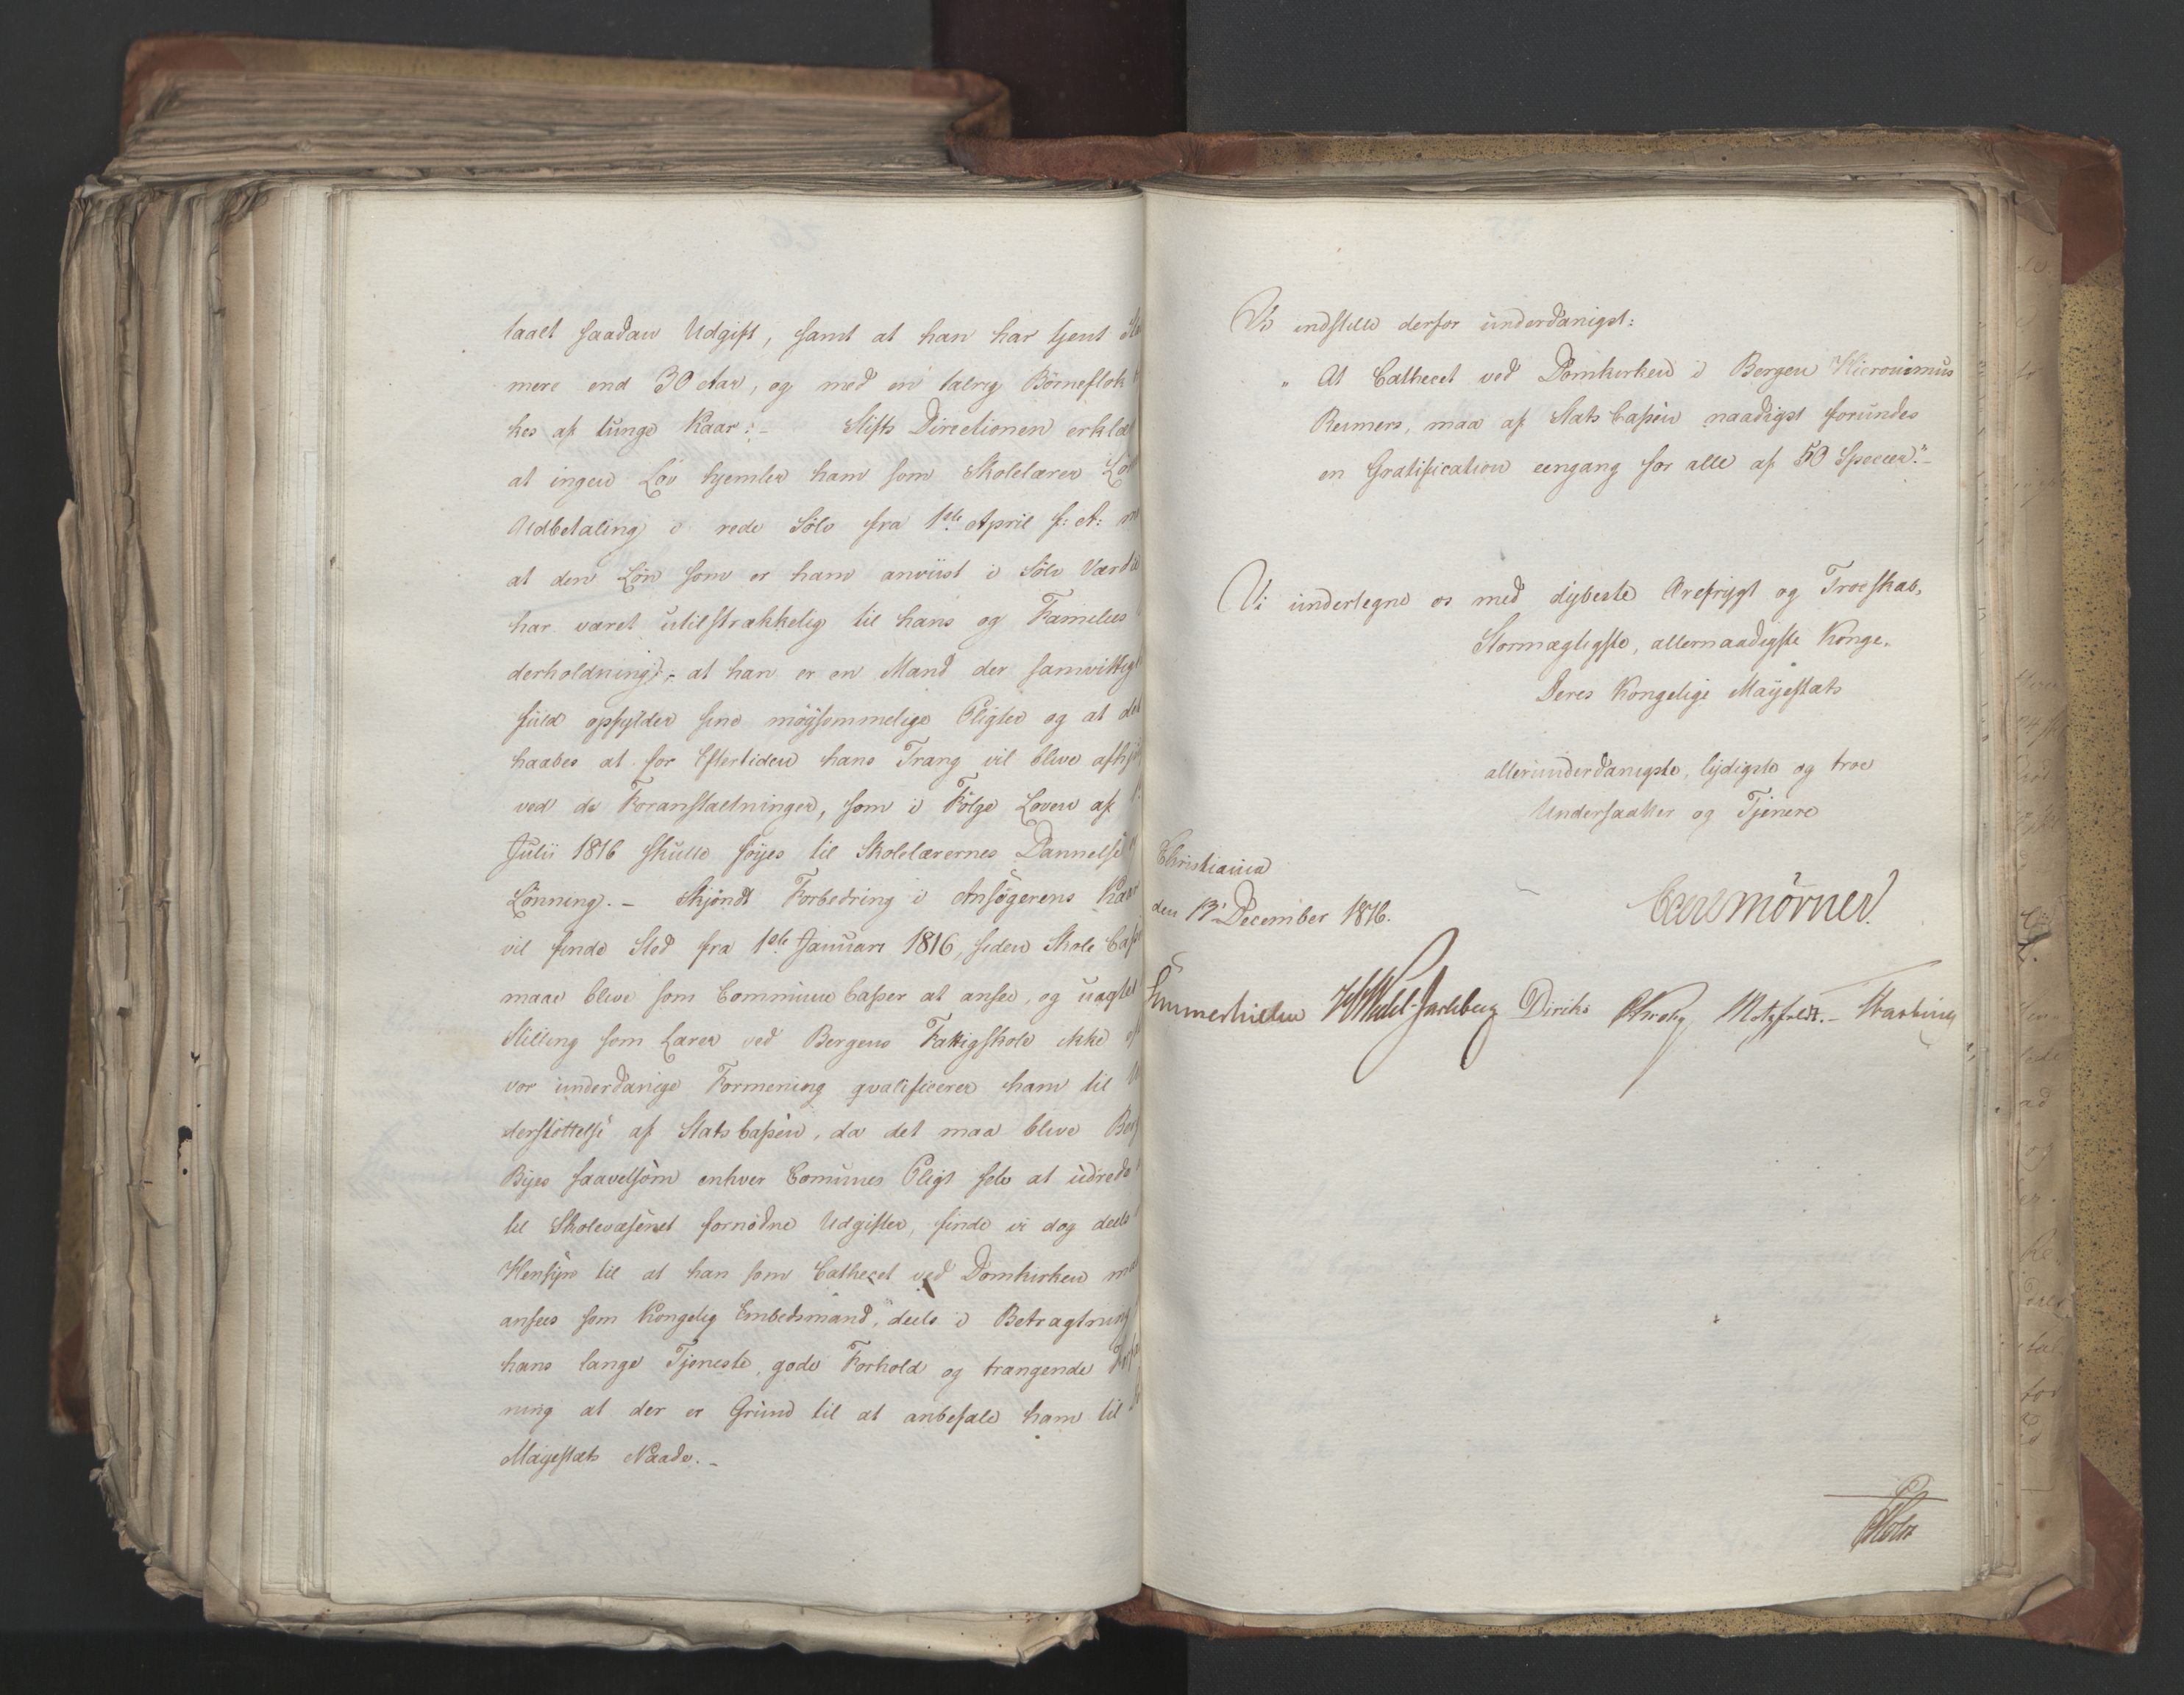 taalt saadan Udgift, samt at han har tjent
mere end 30 Aar, og med en talrig Börneflok
kes af tunge Kaar:- Stifts Directionen erklæ
at ingen Lov hjemler ham som Skolelærer
Udbetaling i rede Sölv fra 1ste April f: A:
at den Lön som er ham anviist i Sölv Værdie
har været utilstrækkelig til hans og Families
derholdning,- at han er en Mand der samvittig
fuld opfylder sine möysommelige Pligter og at det
haabes at for Eftertiden hans Trang vil blive afhj
ved de Foranstaltninger, som i Fölge Loven af
Julii 1816 skulle föyes til Skolelærernes Dannelse
Lönning. - Skjöndt Forbedring i Ansögerens Kaar
vil finde Sted fra 1ste Januari 1816, siden Skole Cass
maae blive som Commune Casser at ansee, og uagtet
Stilling som Lærer ved Bergens Fattigskole ikke
vor underdanige Formening qvalificerer ham til
derstöttelse af Stats Cassen, da det maa blive Berg
Byes saavelsom enhver Comunes Pligt selv at udrede
til Skolevæsenet fornödne Udgifter, finde vi dog deels
Hensyn til at han som Cathecet ved Domkirken
ansees som Kongelig Embedsmand, deels i Betragtning
hans lange Tjeneste, gode Forhold og trængende
ning at der er Grund til at anbefale ham til
Mayestæts Naade. -
Vi indstille derfor underdanigst:
" At Cathecet ved Domkirken i Bergen Hieronimus
Reimers, maa af Stats Cassen naadigst forundes
en Gratification eengang for alle af 50 Species."-
Vi undertegne os med dybeste Ærefrygt og Troeskab,
Stormægtigste, allernaadigste Konge,
Deres Kongelige Mayestæts
allerunderdanigste, lydigste og troe
Undersaatter og Tjenere
Christiania
den 13de December 1816.
Carl Mörner.
Sommerhielm HWedel-Jarlsberg Diriks CKrohg Motzfeldt.- Haxthausen
Holst